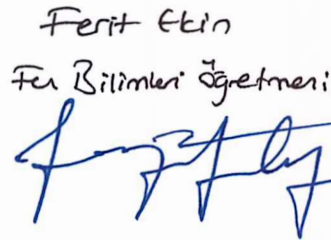 Ferit Ekin
Fen Bilimleri Öğretmeni